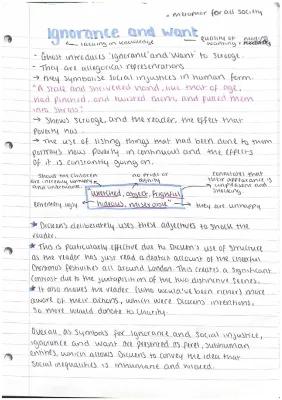 Ignorance and want
lacking in knowledge
- Ghost introduces 'ignorance' and 'want' to Scrooge.
- They are allegorical representations
→ they symbolise social injustices in human form.
"A stale and shrivelled hand, like that of age,
had pinched, and twisted them, and pulled them
into shreds"
→ Shows Scrooge, and the reader, the effect that
poverty has
→ The use of listing things that had been done to them
portrays how poverty is continuous and the effects
of it is constantly going on.
Shows the children
no pride or
dignity
"wretched, abject, frightful
hideous, miserable"
they are unhappy
★ Dickens deliberately uses these adjectives to shock the
reader.
★ This is particularly effective due to Dickens's use of structure
as the reader has just read a detailed account of the cheerful
Christmas festivities all around London. This creates a significant
contrast due to the juxtaposition of the two scenes.
★ It also makes the reader (who would've been richer) more
aware of their actions, which were Dickens' intentions,
so more would donate to charity.
Overall, as symbols for ignorance and social injustice,
ignorance and want are presented as feral, subhuman
entities, which allows Dickens to convey the idea that
social inequalities is inhumane and